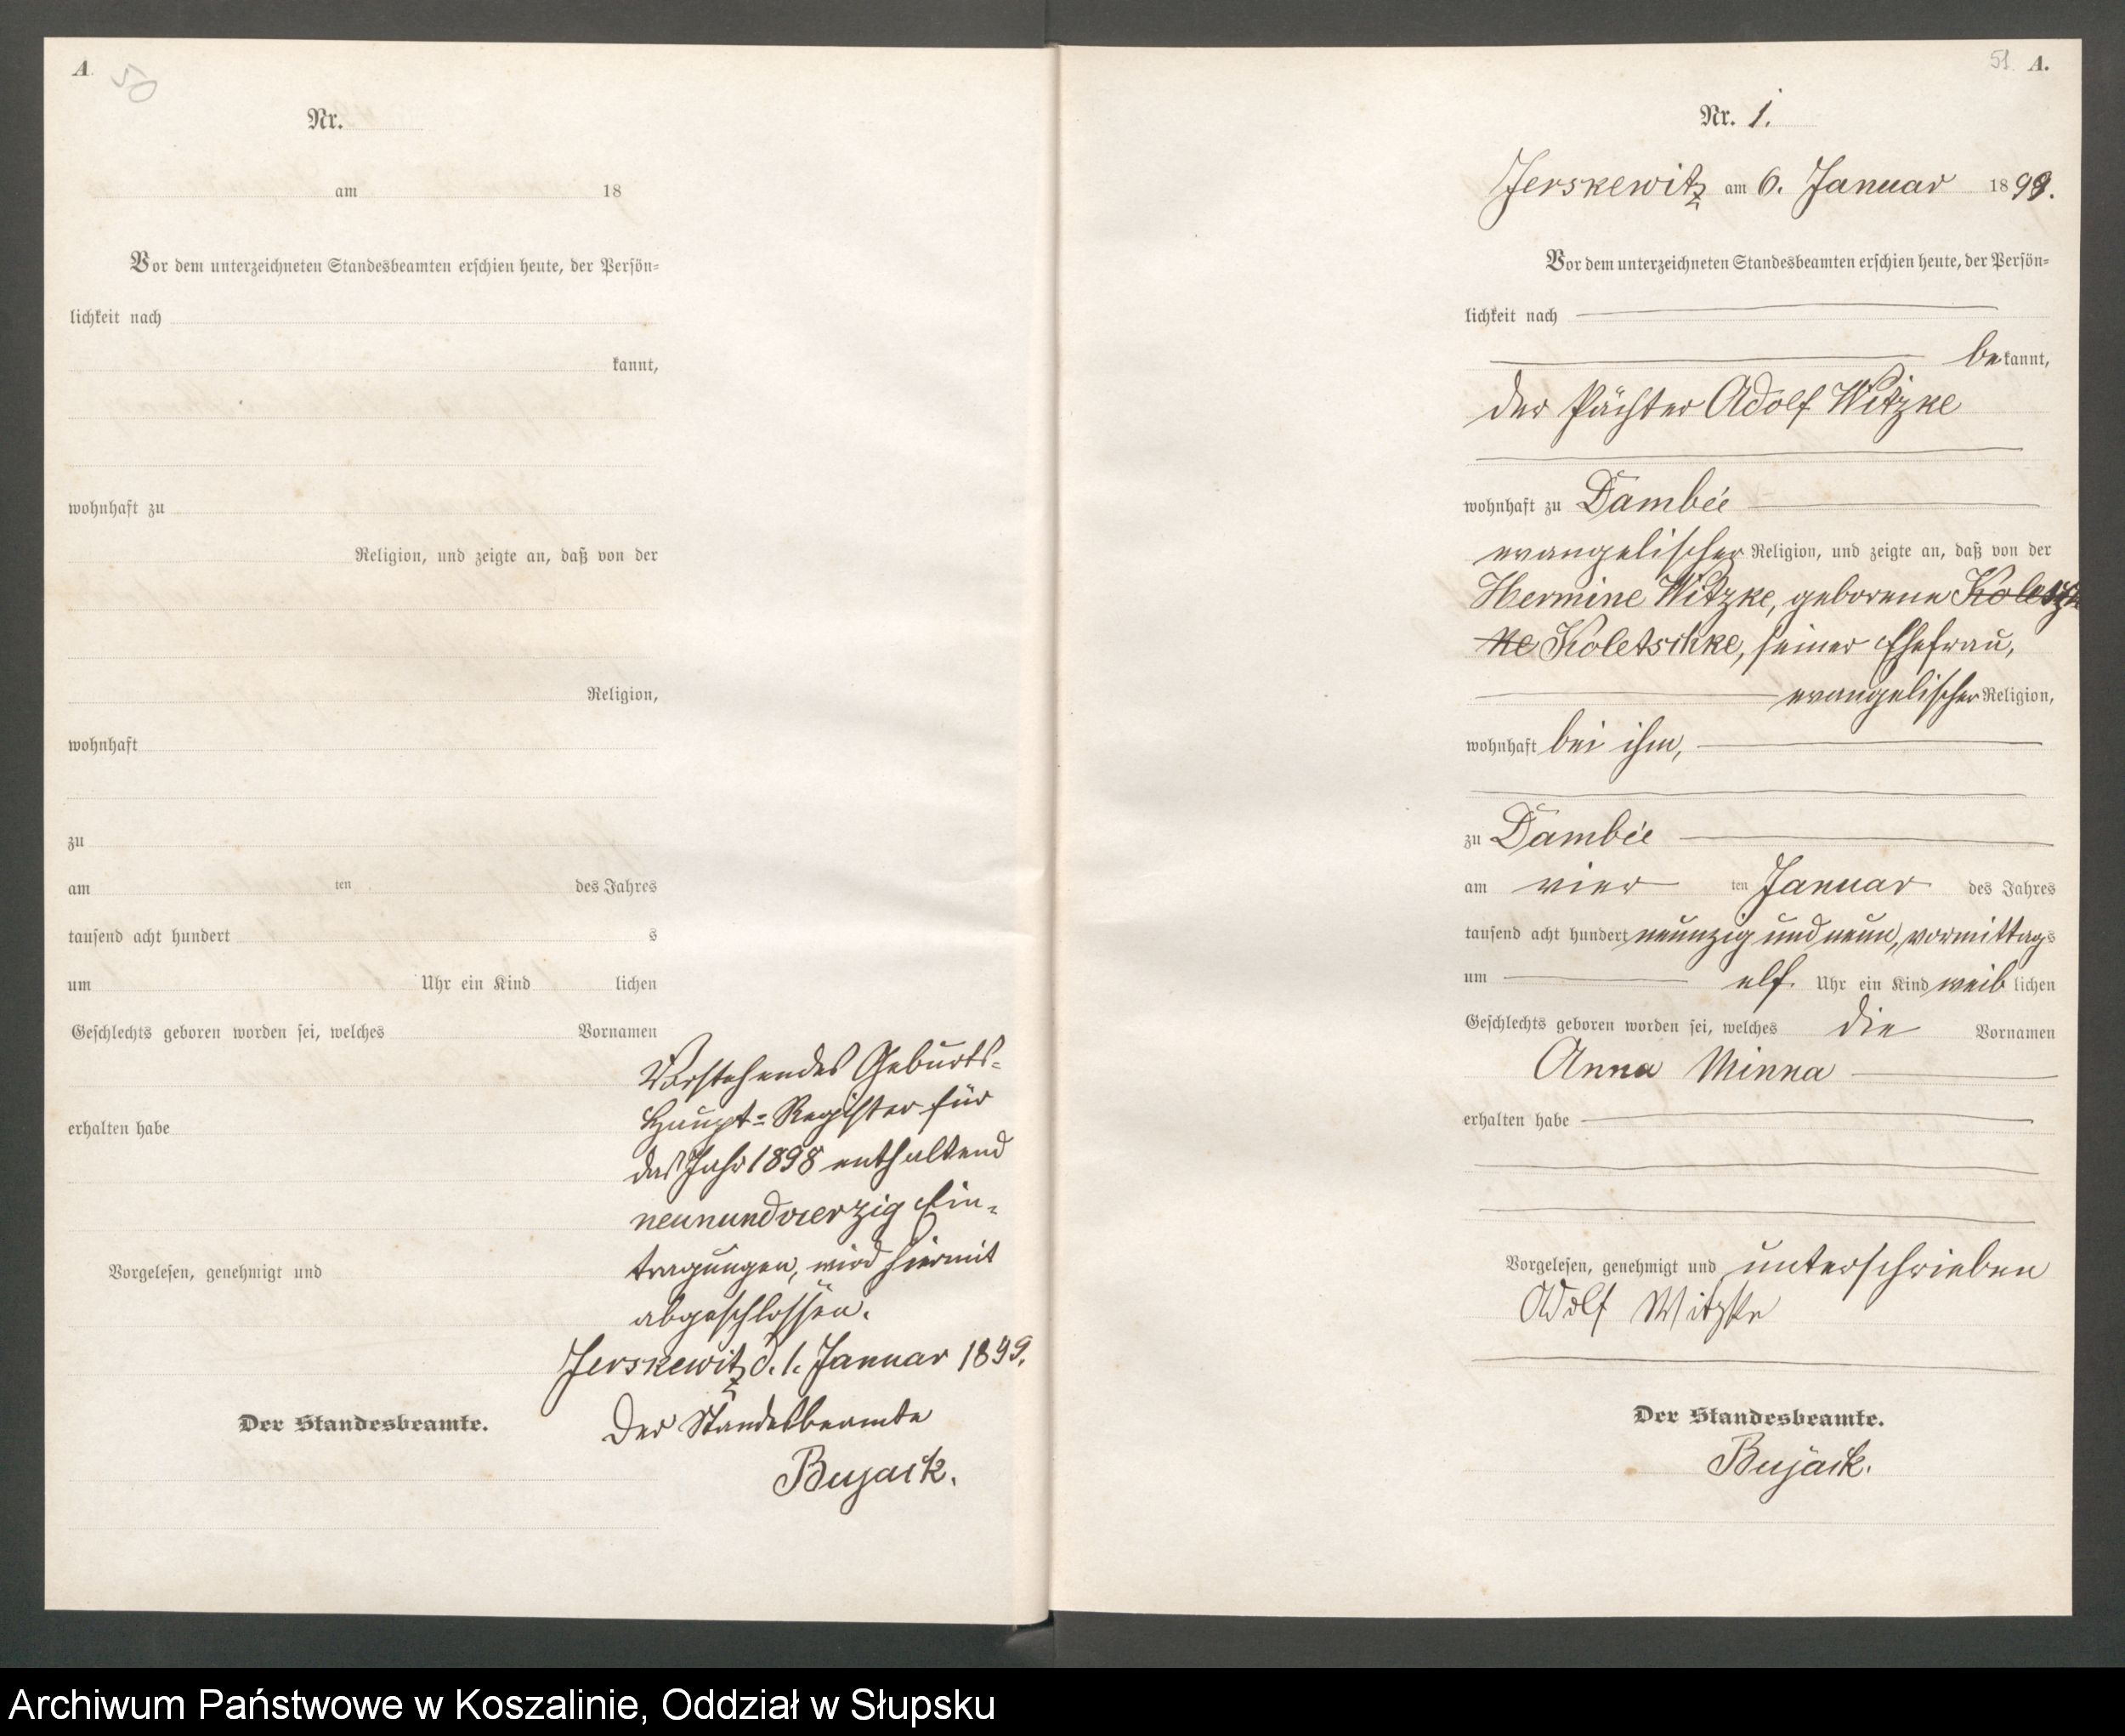 A.
50
Nr.
am 18
Vor dem unterzeichneten Standesbeamten erschien heute, der Persön-
lichkeit nach
kannt,
wohnhaft zu
Religion, und zeigte an, daß von der
Religion,
wohnhaft
zu
am ten des Jahres
tausend acht hundert s
um Uhr ein Kind lichen
Geschlechts geboren worden sei, welches Vornamen
erhalten habe
Vorgelesen, genehmigt und
Der Standesbeamte.
Vorstehendes Geburts-
Haupt-Register für
das Jahr 1898 enthaltend
neunundvierzig Ein-
tragungen, wird hiermit
abgeschlossen.
Jerskewitz d. 1. Januar 1899.
Der Standesbeamte
Bujack.
51 A.
Nr. 1.
Jerskewitz am 6. Januar 1899.
Vor dem unterzeichneten Standesbeamten erschien heute, der Persön-
lichkeit nach
bekannt,
der Pächter Adolf Witzke
wohnhaft zu Dambée
evangelischer Religion, und zeigte an, daß von der
Hermine Witzke, geborene
ke Koletschke, seiner Ehefrau,
evangelischer Religion,
wohnhaft bei ihm,
zu Dambée
am vier ten Januar des Jahres
tausend acht hundert neunzig und neun, vormittags
um elf Uhr ein Kind weiblichen
Geschlechts geboren worden sei, welches die Vornamen
Anna Minna
erhalten habe
Vorgelesen, genehmigt und unterschrieben
Adolf Witzke
Der Standesbeamte.
Bujack.
Archiwum Państwowe w Koszalinie, Oddział w Słupsku